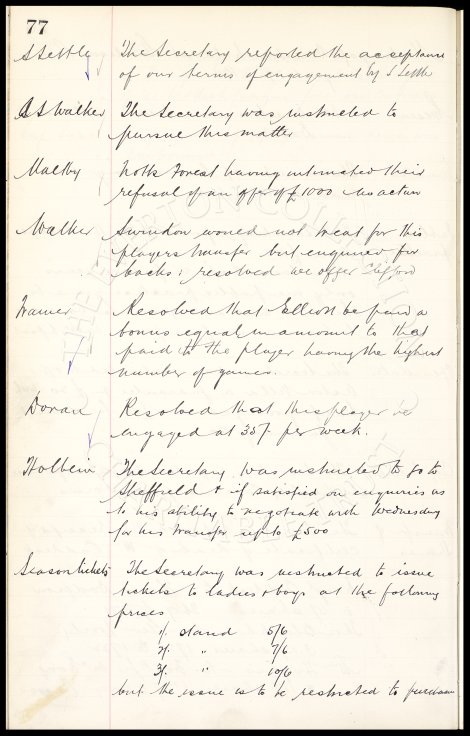 77
S Settle The Secretary reported the acceptance
of our terms of engagement by S Settle
A S Walker The Secretary was instructed to
pursue this matter
Maltby Notts Forest having intimated their
refusal of an offer of £1000 no action
Walker Swindon would not treat for this
players transfer but enquired for
backs; resolved we offer Clifford
Trainer Resolved that Elliott be paid a
bonus equal in amount to that
paid to the player having the highest
number of games.
Doran Resolved that this player be
engaged at 35/- per week.
Holbein The Secretary was instructed to go to
Sheffield & if satisfied on enquiries as
to his ability to negotiate with Wednesday
for his transfer up to £500
Season tickets The Secretary was instructed to issue
tickets to ladies & boys at the following
prices
1/. stand 5/6
2/. " 7/6
3/. " 10/6
but the issue is to be restricted to purchase